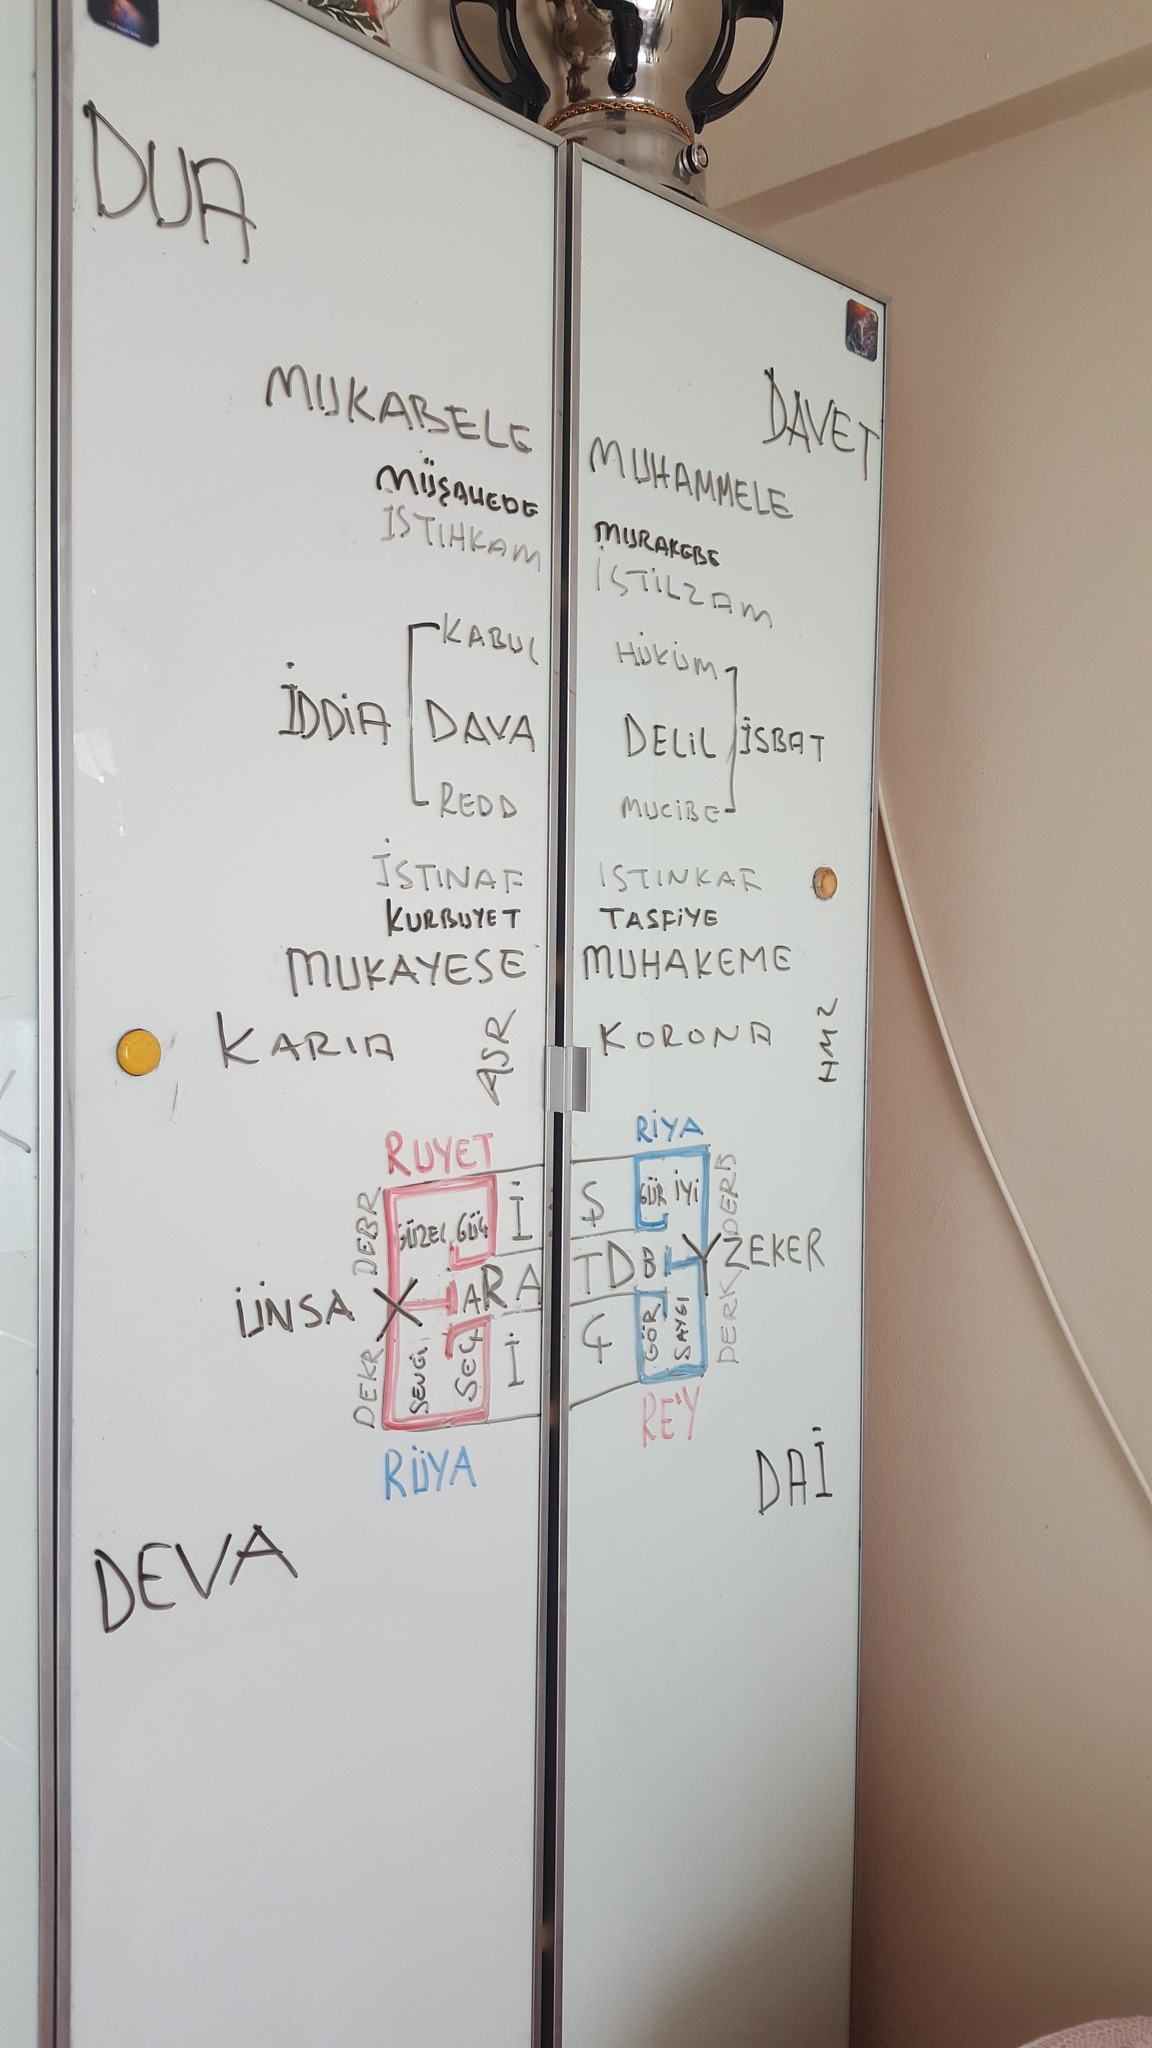 DUA
DAVET
MUKABELE
MUHAMMELE
MÜŞAHEDE
MURAKEBE
İSTIHKAM
İSTİLZAM
KABUL
HÜKÜM
İDDİA
DAVA
DELİL
İSBAT
REDD
MUCİBE
İSTINAF
ISTINKAF
KURBUYET
TASFİYE
MUKAYESE
MUHAKEME
KARIA
ASR
KORONA
HMZ
RUYET
RİYA
DEBR
GÜZEL
GÜÇ
İ
Ş
GÜR
İYİ
DERB
ÜNSA
X
ARA
TDB
Y
ZEKER
DEKR
SEVGİ
SEÇ
İ
Ç
GÖR
SAYGI
DERK
RÜYA
RE'Y
DAİ
DEVA